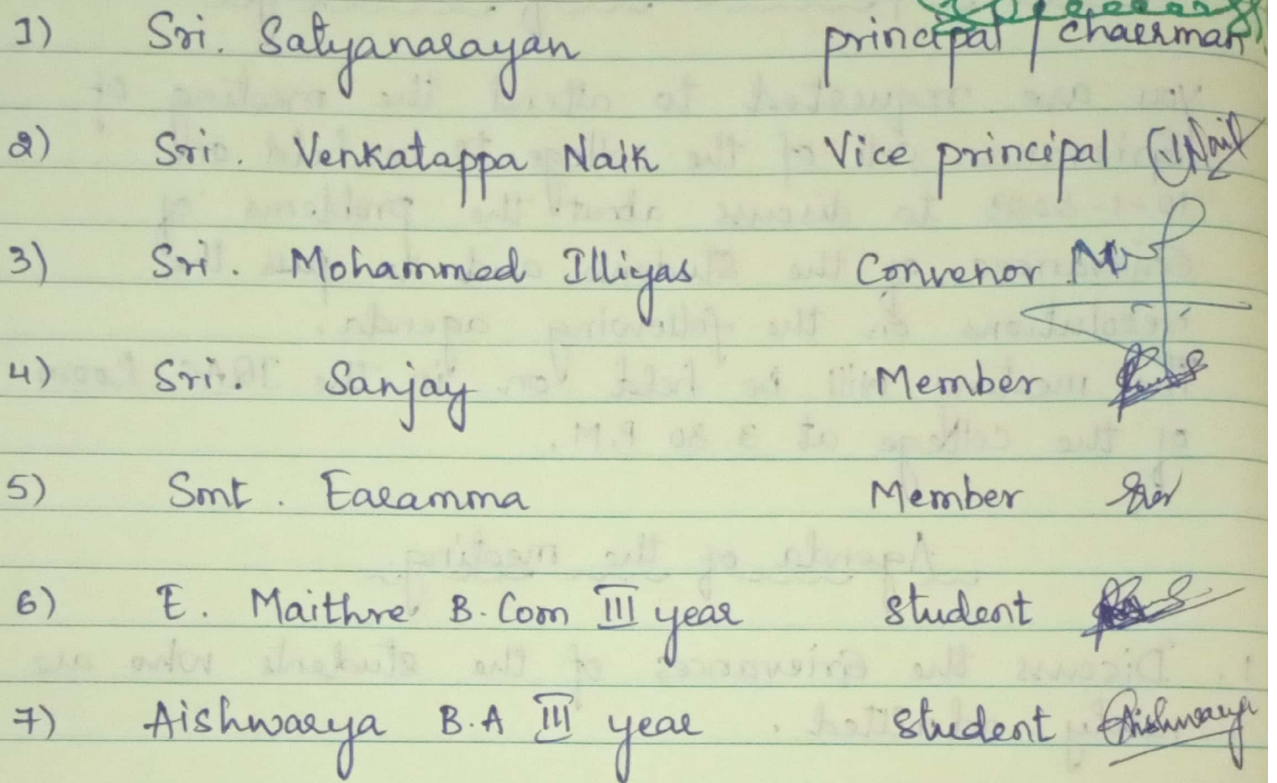 1) Sri. Satyanarayan principal / chairman
2) Sri. Venkatappa Naik Vice principal
3) Sri. Mohammed Illiyas Convenor
4) Sri. Sanjay Member
5) Smt. Earamma Member
6) E. Maithre B.Com III year student
7) Aishwarya B.A III year student Aishwarya